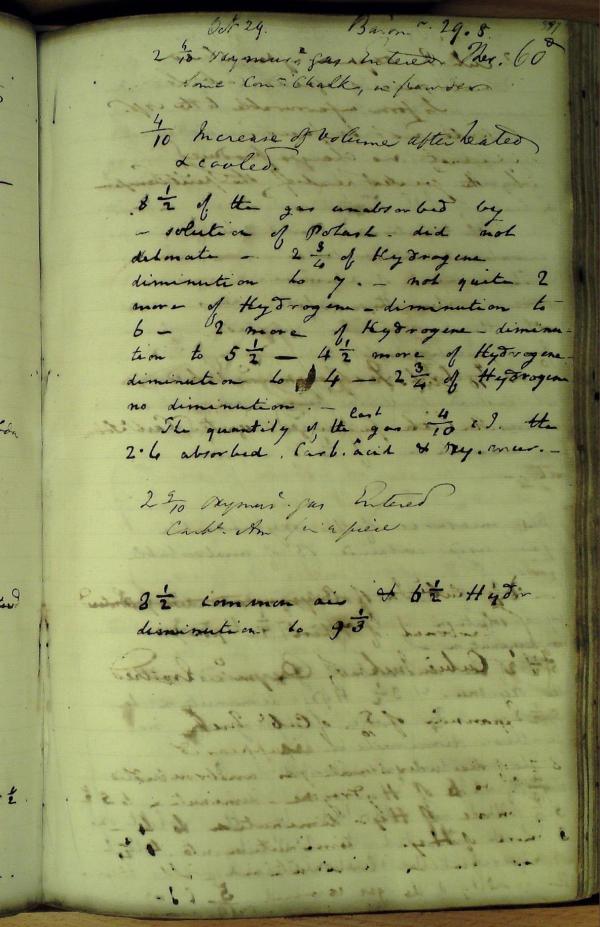 Oct 29. Barom r. 29.8 Ther. 60°
2 4/10 oxymur c gas Entered
Some Com n Chalk, in powder
4/10 Increase of Volume after heated
& cooled.
8 1/2 of the gas unabsorbed by
- solution of Potash - did not
detonate - 2 3/4 of Hydrogene
diminution to 7. - not quite 2
more of Hydrogene - diminution to
6 - 2 more of Hydrogene - diminu-
tion to 5 1/2 - 4 1/2 more of Hydrogene
diminution to 4 - 2 3/4 of Hydrogene
no diminution. -
The quantity of the last gas 4/10 c I. the
2.6 absorbed. Carb. acid & oxy. mur. -
2 9/10 oxymur c. gas Entered
Carb te Am in a piece
8 1/2 common air & 6 1/2 Hydr
diminution to 9 1/3